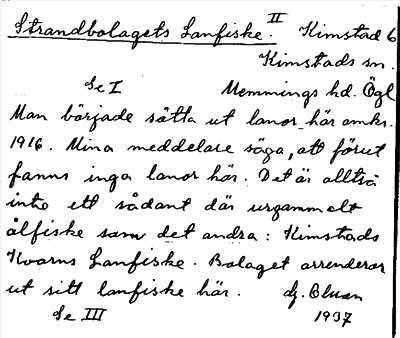 Strandbolagets Lanfiske. II Kimstad 6
Kimstads sn.
Se I Memmings hd. Ögl
Man började sätta ut lanor här omkr.
1916. Mina meddelare säga, att förut
fanns inga lanor här. Det är alltså
inte ett sådant där urgammalt
ålfiske som det andra: Kimstads
Kvarns Lanfiske. Bolaget arrenderar
ut sitt lanfiske här.
Se III 1937